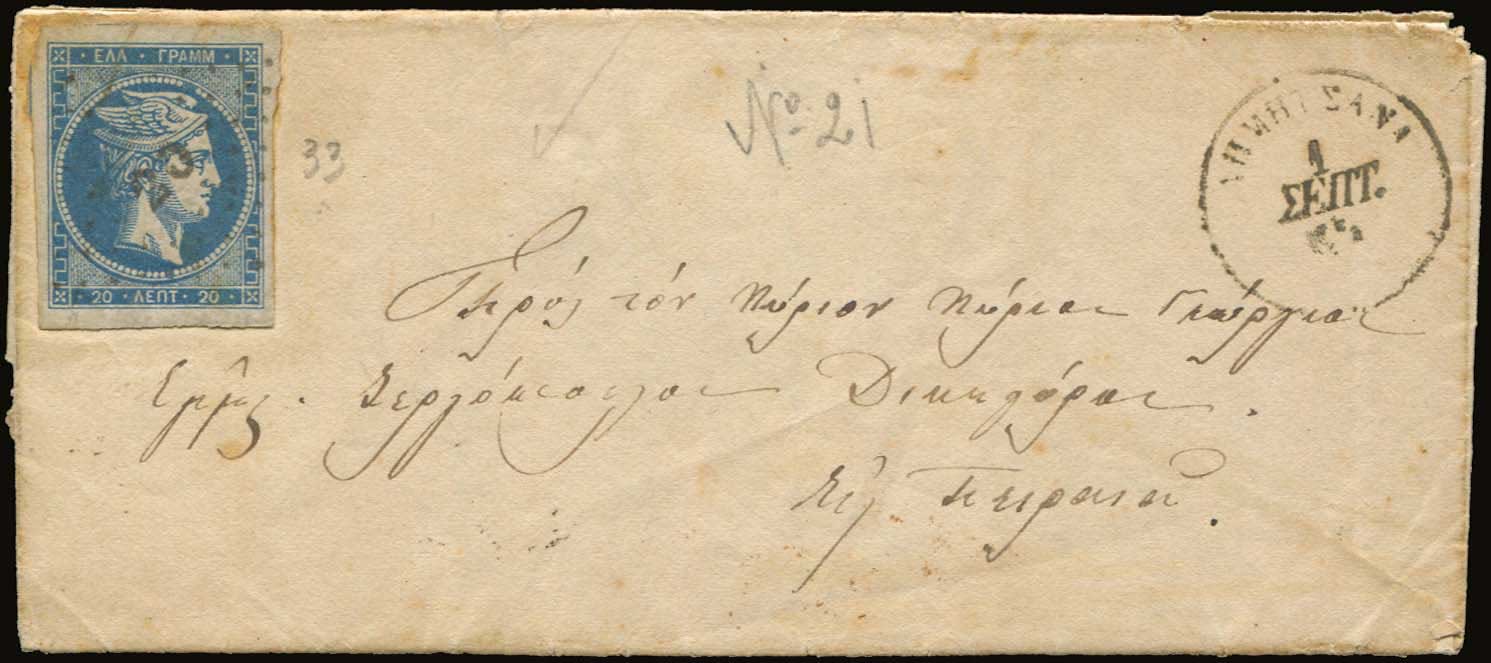 ΕΛΛ · ΓΡΑΜΜ
20 · ΛΕΠΤ · 20
33
Nº 21
ΔΗΜΗΤΣΑΝΑ
1
ΣΕΠΤ.
Πρὸς τὸν Κύριον Κύριον Γεώργιον
Δικηγόρον.
Εἰς Πειραιᾶ.